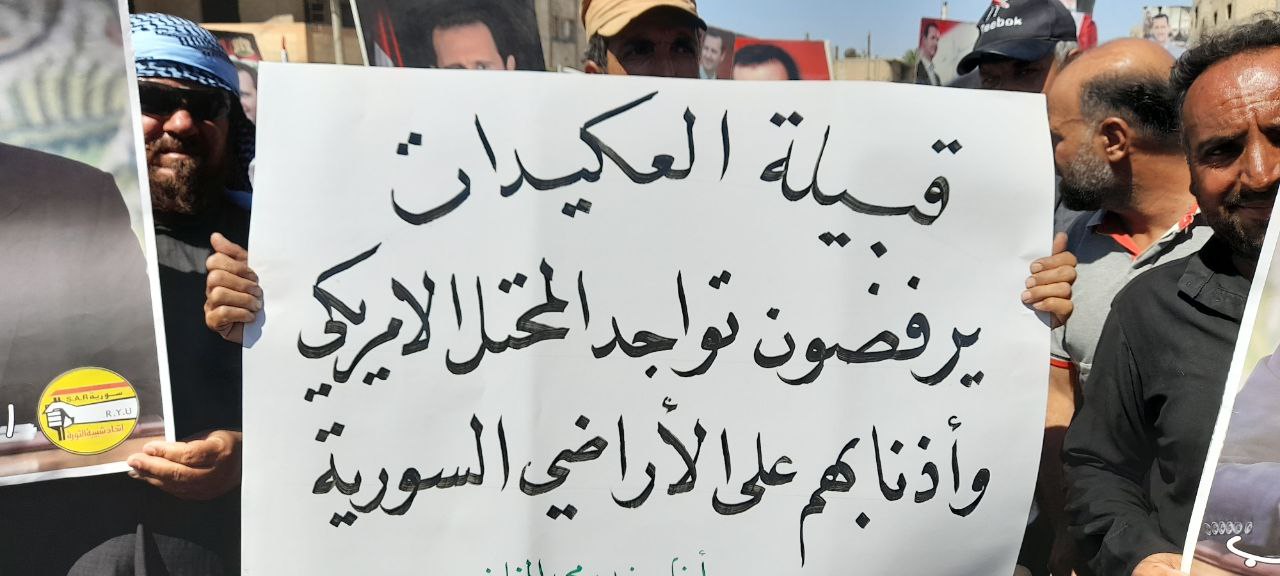 قبيلة العكيدات
يرفضون تواجد المحتل الامريكي
وأذنابهم على الأراضي السورية
Reebok
سورية S.A.R
R.Y.U
اتحاد شبيبة الثورة